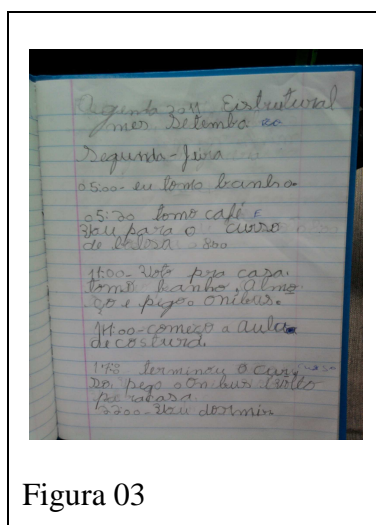 Agenda Estrutural
mes Setembro
Segunda-feira
05:00- eu tomo banho.
05:30 tomo café e
Vou para o curso
de beleza 800
11:00- Volto pra casa.
tomo banho, almo
ço e pego o ônibus.
14:00- começo a aula
de costura.
terminou o cur
so, pego o onibus Volto
pra casa.
2200- Vou dormir.
Figura 03